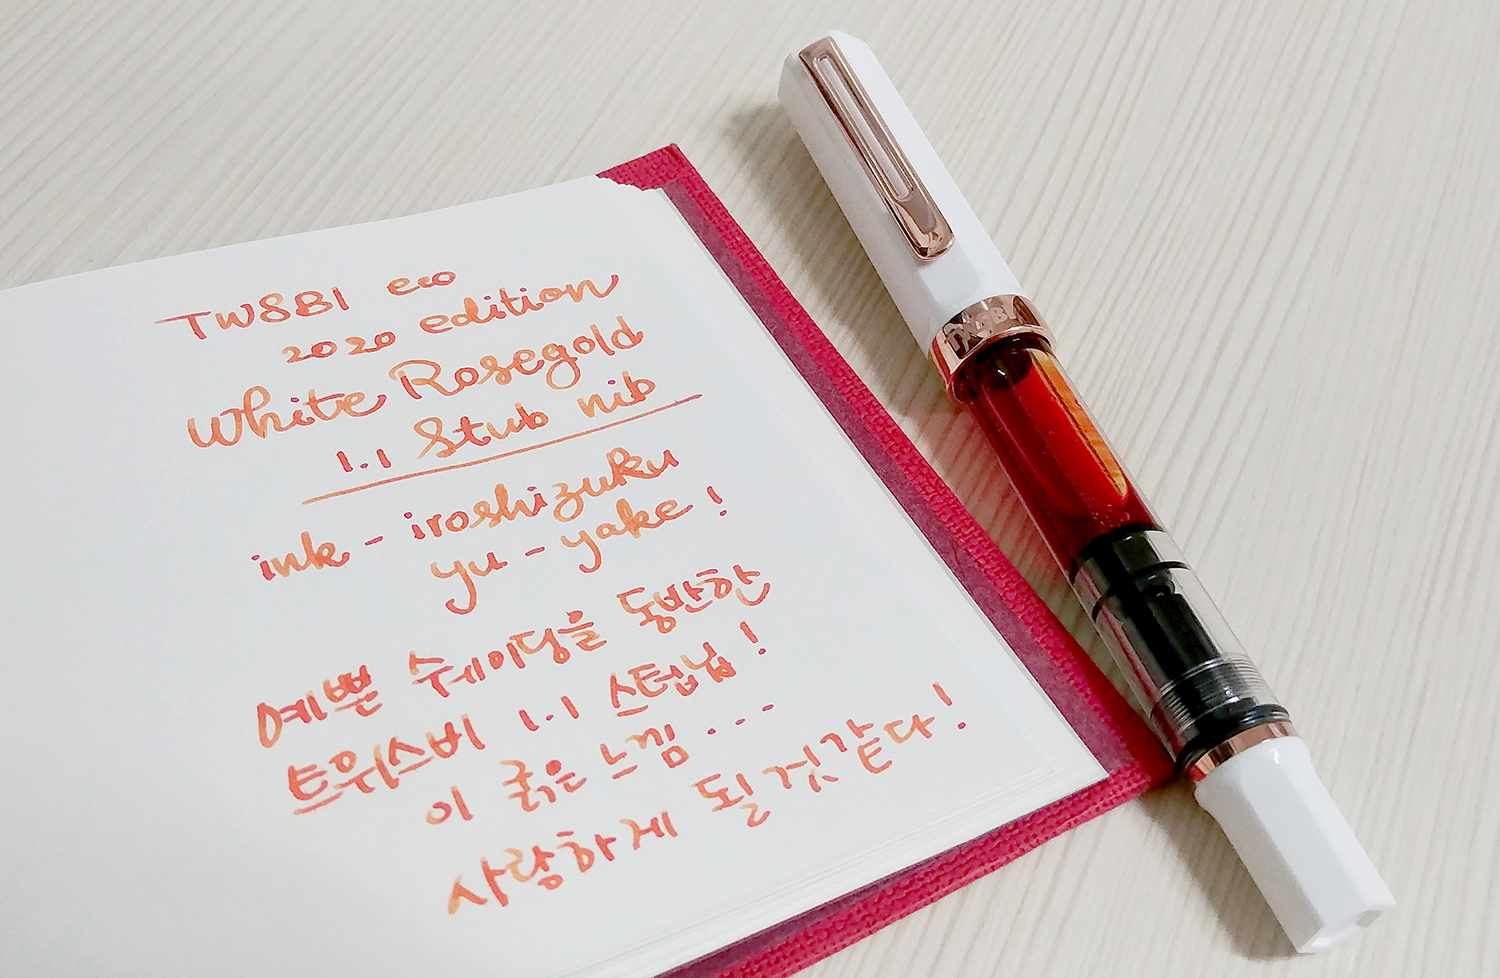 TWSBI eco
2020 edition
White Rosegold
1.1 Stub nib
ink - iroshizuku
yu - yake !
예쁜 쉐이딩을 동반한
트위스비 1.1 스텁닙 !
이 굵은 느낌 ...
사랑하게 될 것 같다 !
TWSBI